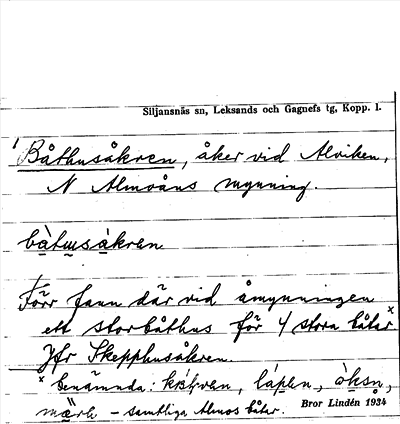 Siljansnäs sn, Leksands och Gagnefs tg, Kopp. l.
Båthusåkren, åker vid Alviken,
N Almoåns mynning.
bàtusàkren
Förr fann där vid åmynningen
ett storbåthus för 4 stora båtar x
Jfr Skepphusåkren.
x benämnda:
– samtliga Almos båtar.
Bror Lindén 1934